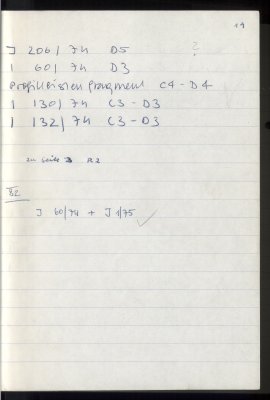 19
J 206/74 D5 ?
I 60/74 D3
Profiliertes Fragment C4-D4
I 130/74 C3-D3
I 132/74 C3-D3
zu Seite 3 R2
B2
J 60/74 + J 1/75 ✓